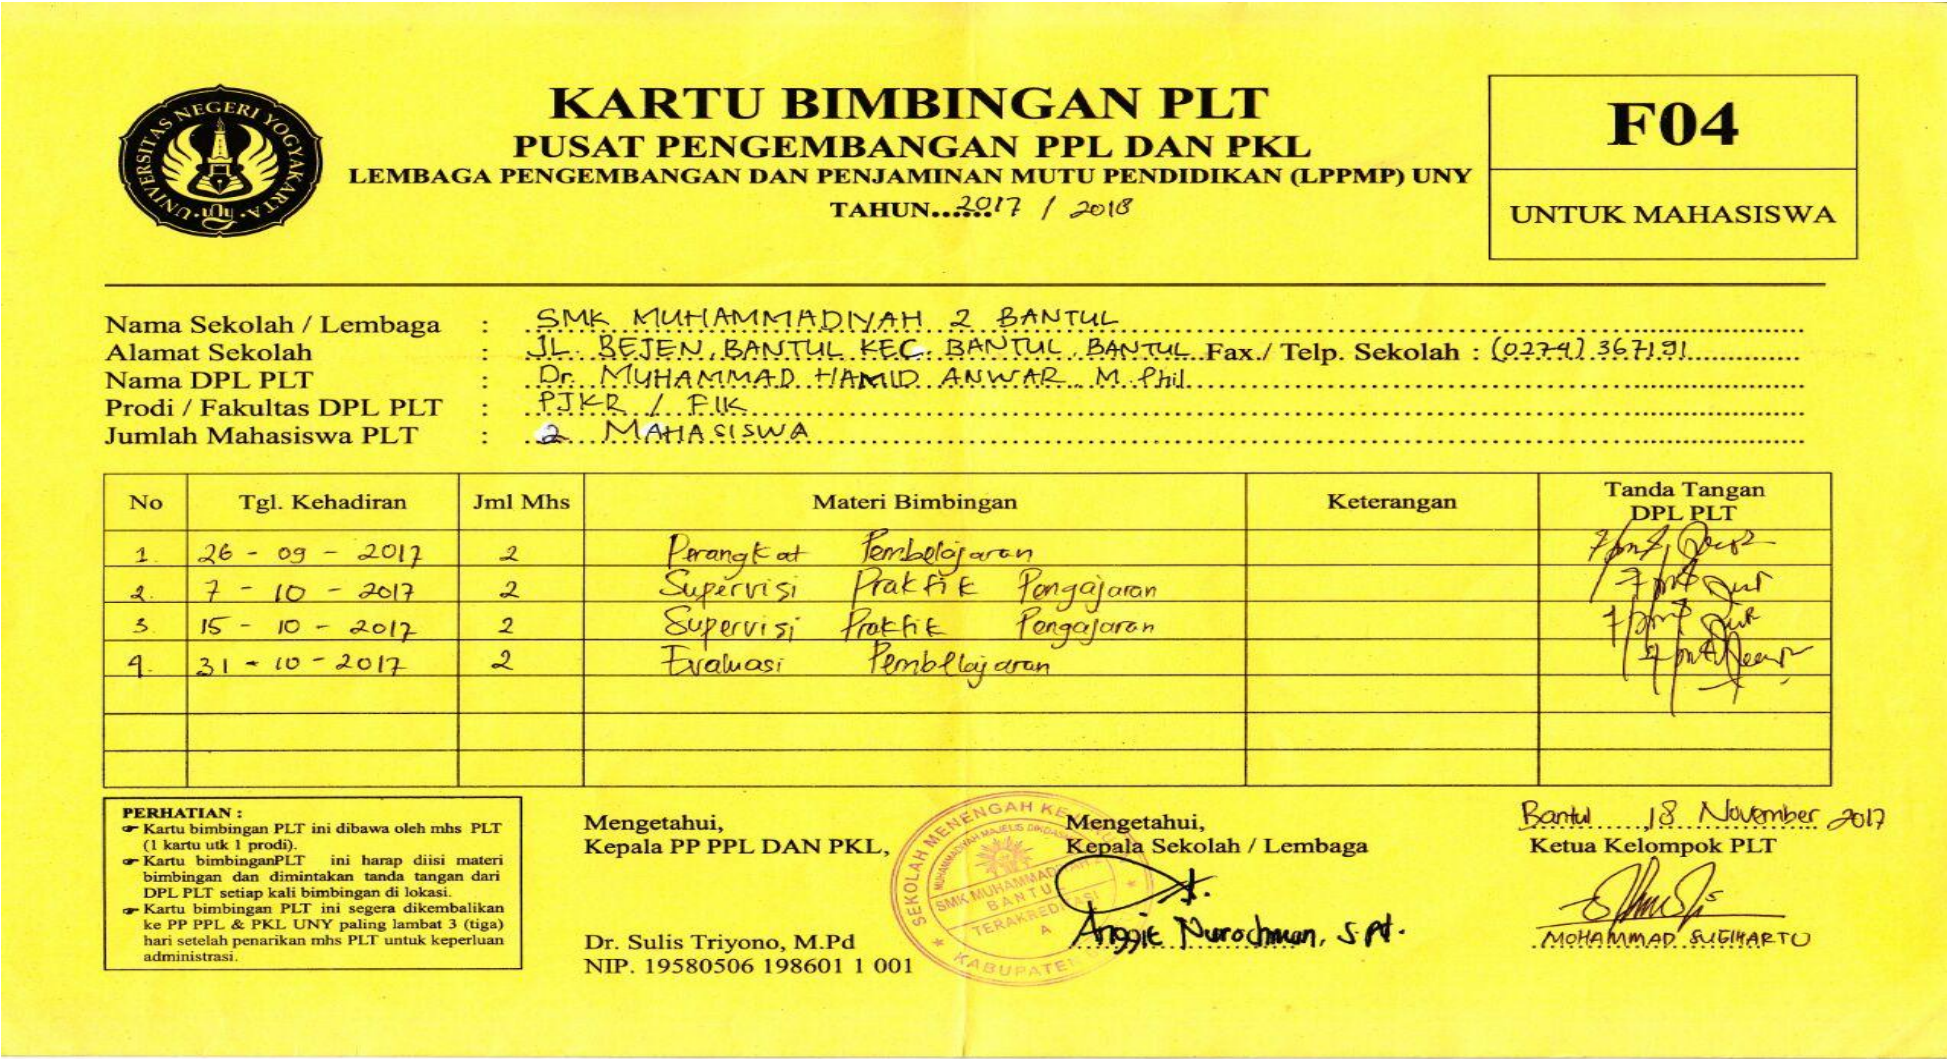 UNIVERSITAS NEGERI YOGYAKARTA
KARTU BIMBINGAN PLT
PUSAT PENGEMBANGAN PPL DAN PKL
LEMBAGA PENGEMBANGAN DAN PENJAMINAN MUTU PENDIDIKAN (LPPMP) UNY
TAHUN....... 2017 / 2018
F04
UNTUK MAHASISWA
Nama Sekolah / Lembaga : SMK MUHAMMADIYAH 2 BANTUL
Alamat Sekolah : JL. BEJEN, BANTUL KEC. BANTUL, BANTUL Fax./ Telp. Sekolah : (0274) 367191
Nama DPL PLT : Dr. MUHAMMAD HAMID ANWAR M.Phil
Prodi / Fakultas DPL PLT : PJKR / FIK
Jumlah Mahasiswa PLT : 2 MAHASISWA
No Tgl. Kehadiran Jml Mhs Materi Bimbingan Keterangan Tanda Tangan DPL PLT
1. 26 - 09 - 2017 2 Perangkat Pembelajaran
2. 7 - 10 - 2017 2 Supervisi Praktik Pengajaran
3. 15 - 10 - 2017 2 Supervisi Praktik Pengajaran
4. 31 - 10 - 2017 2 Evaluasi Pembelajaran
PERHATIAN :
Kartu bimbingan PLT ini dibawa oleh mhs PLT
(1 kartu utk 1 prodi).
Kartu bimbinganPLT ini harap diisi materi
bimbingan dan dimintakan tanda tangan dari
DPL PLT setiap kali bimbingan di lokasi.
Kartu bimbingan PLT ini segera dikembalikan
ke PP PPL & PKL UNY paling lambat 3 (tiga)
hari setelah penarikan mhs PLT untuk keperluan
administrasi.
Mengetahui,
Kepala PP PPL DAN PKL,
Dr. Sulis Triyono, M.Pd
NIP. 19580506 198601 1 001
SEKOLAH MENENGAH
SMK MUHAMMADIYAH 2
BANTUL
TERAKREDITASI
A
KABUPATEN
Mengetahui,
Kepala Sekolah / Lembaga
Anggit Nurochman, S.Pd.
Bantul, 18 November 2017
Ketua Kelompok PLT
MOHAMMAD SUGIHARTO